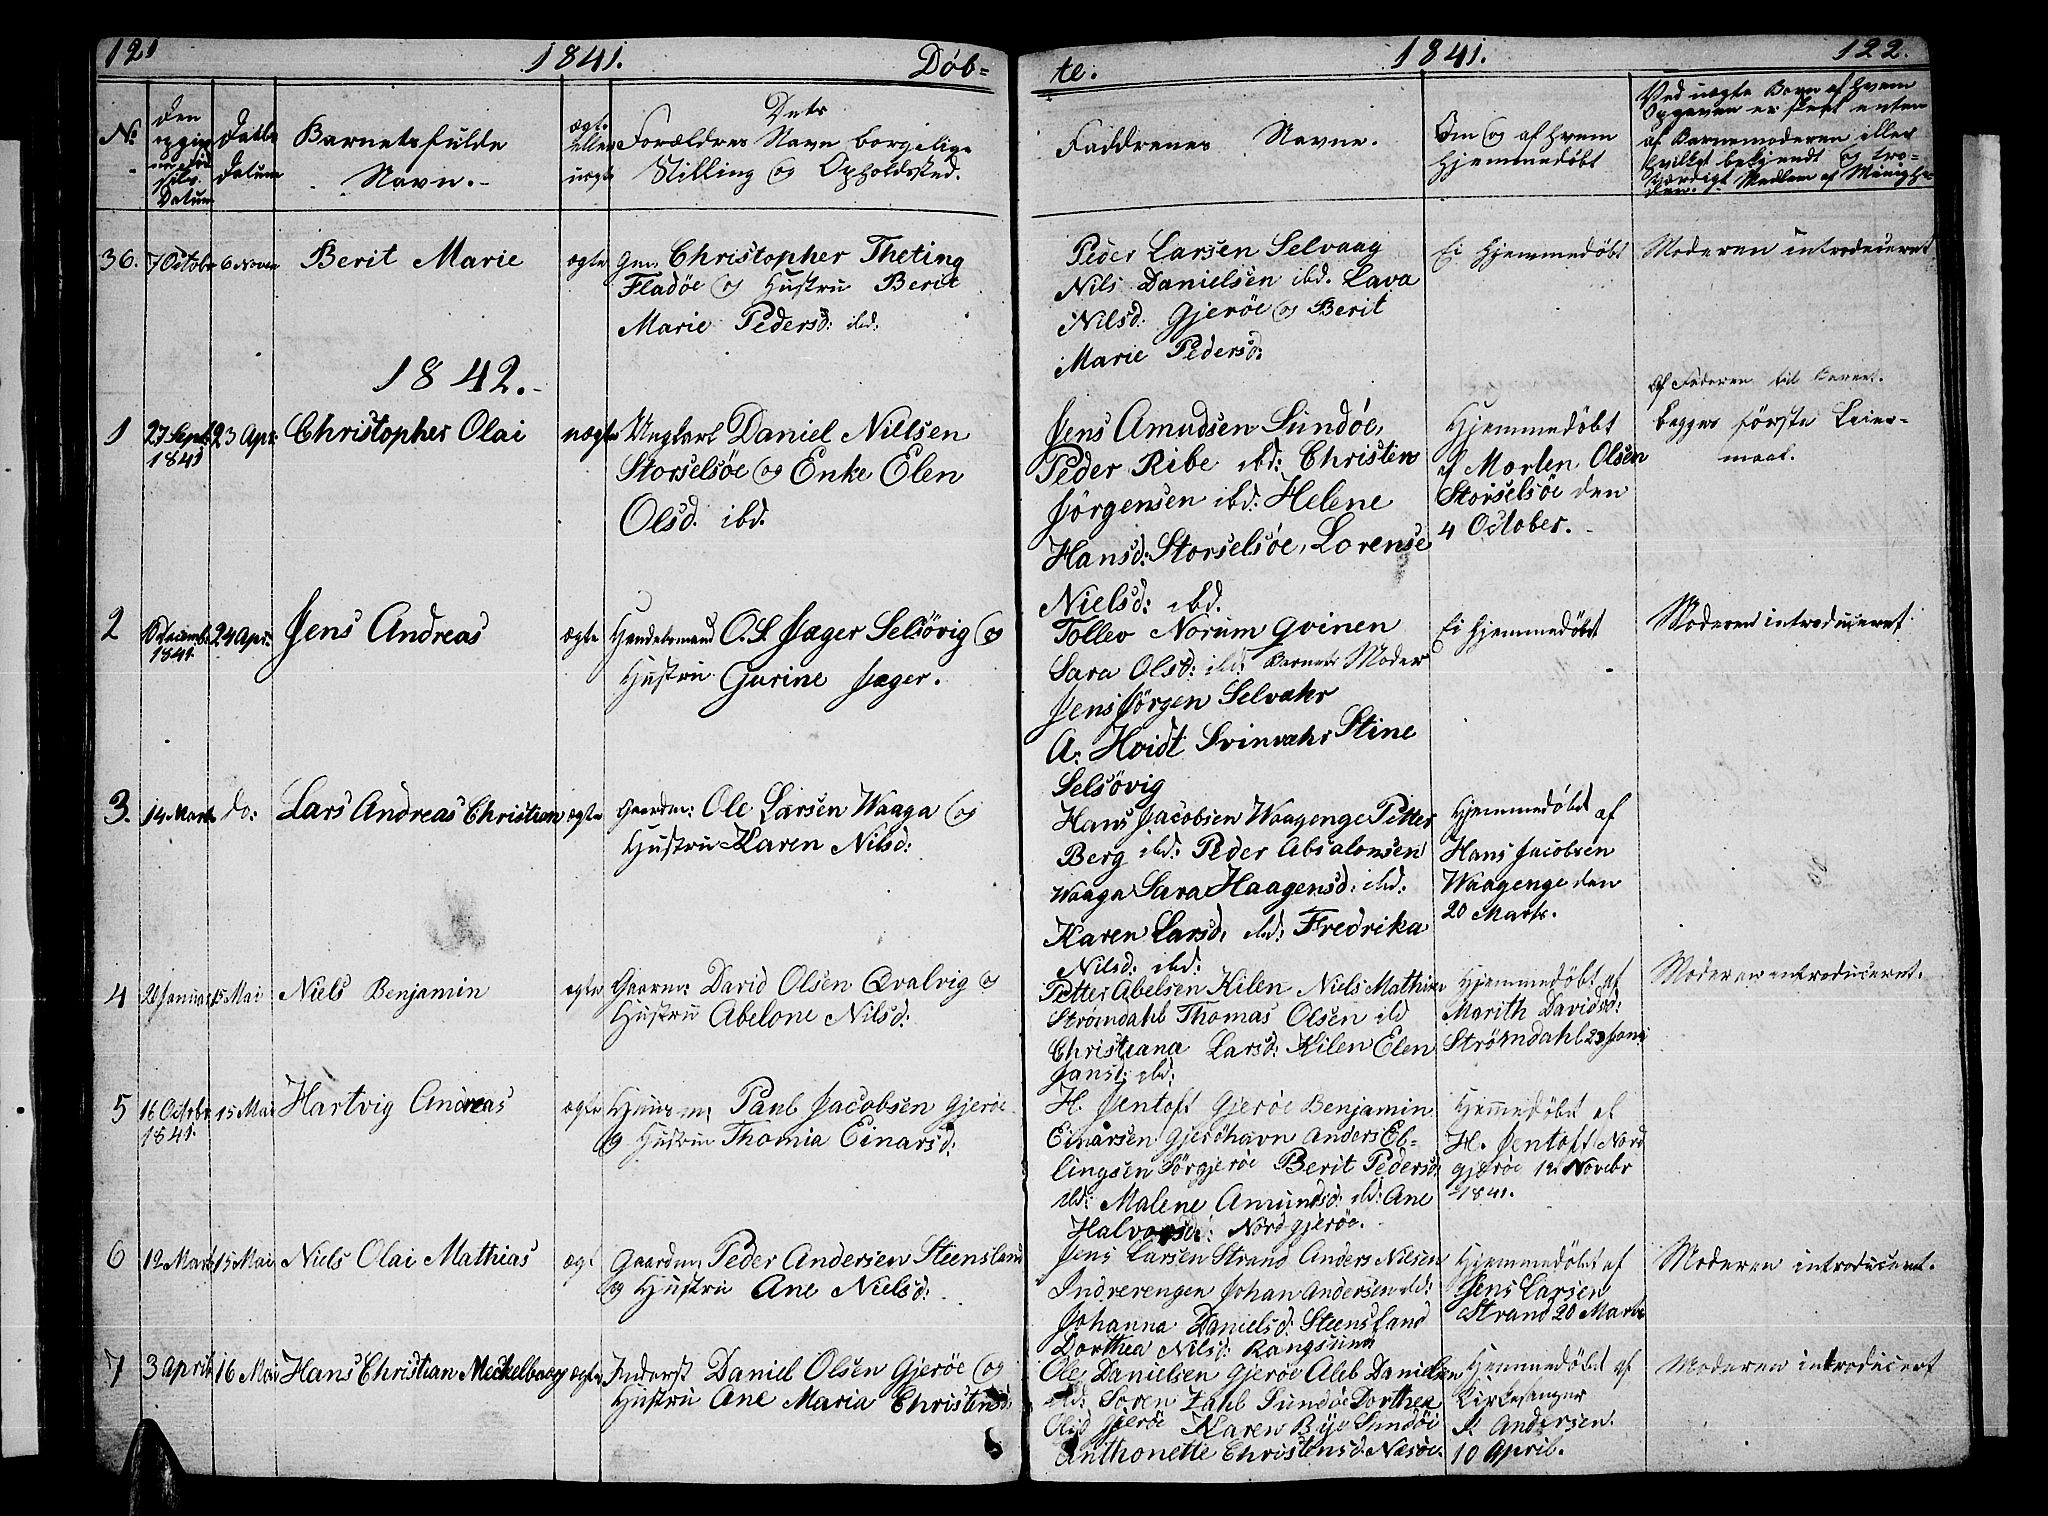 121 1841. Døb= te. 1841. 122.
No. Den Datum
Daabs Datum
Barnets fulde
Navn.
ægte
eller
uægte
Dets
Forældres Navn borgelige
Stilling og Opholdssted.
Faddrenes Navne.
Om og af hvem
Hjemmedøbt
Ved uægte Børn af hvem
Opgaven er skeet enten
af Barnemoderen eller
hvilket bekjendt og tro-
værdigt Medlem af Menighe-
den.
36. 7 Octobr 6 Novem Berit Marie ægte Gm. Christopher Theting
Fladøe og Hustru Berit
Marie Pedersd: ibd:
Peder Larsen Selvaag
Nils Danielsen ibd. Lava
Nilsd: Gjerøe og Berit
Marie Pedersd:
Ei Hjemmedøbt
Moderen introduceret
1842.
1 27 Septb 1841 23 Apr. Christopher Olai uægte Ungkarl Daniel Nielsen
Storselsöe og Enke Elen
Olsd. ibd.
Jens Amudsen Sundöe,
Peder Ribe ibd: Christen
Jörgensen ibd: Helene
Hansd: Storselsöe, Lorense
Nielsd: ibd.
Hjemmedøbt
af Morten Olsen
Storselsöe den
4 October.
Af Faderen til Barnet.
begges første Leier-
maal.
2 Decembr 1841. 24 Apr: Jens Andreas ægte Handelsmand O. S. Jæger Selsövig og
Hustru Gurine Jæger.
Tollev Norum Qvinen
Sara Olsd: ibd: Barnets Moder
Jens Jörgen Selvahr
A: Hvidt Svinvahr Stine
Selsövig
Ei Hjemmedøbt
Moderen introduceret
3. 14 Marts do: Lars Andreas Christian ægte Gaardm: Ole Larsen Waaga og
Hustru Karen Nilsd:
Hans Jacobsen Waagenge Petter
Berg ibd: Peder Absalonsen
Waaga Sara Haagensd: ibd:
Karen Larsd: ibd: Fredrika
Nilsd: ibd:
Hjemmedøbt af
Hans Jacobsen
Waagenge den
20 Marts.
4 Januar 15 Mai Niels Benjamin ægte Gaardm: David Olsen Qvalvig og
Hustru Abelone Nilsd:
Petter Abelsen Kilen Niels Mathisen
Strømdahl Thomas Olsen ibd
Christiana Larsd: Kilen Elen
Jansd: ibd:
Hjemmedøbt af
Marith Davidsd:
Strömdahl 23 Janr
Moderen introduceret.
5 16 Octobr 1841. 15 Mai Hartvig Andreas ægte Huusm: Paul Jacobsen Gjerøe
og Hustru Thomia Einarsd:
H. Jentoft Gjerøe Benjamin
Einarsen Gjeröhavn Anders Eb-
lingsen Sörgjeröe Berit Pedersd
ibd: Malene Amundsd: ibd: Ane
Halvorsd: Nordgjeröe.
Hjemmedøbt af
H. Jentoft Nord
gjeröe 12 Novebr
1841.
6 12 Marts 15 Mai Niels Olai Mathias ægt Gaardm: Peder Andersen Steensland
og Hustru Ane Nielsd:
Jens Larsen Strand Anders Nilsen
Indrerengen Johan Andersen ibd:
Johanna Danielsd: Steensland
Dorthea Nilsd: Rangsund
Hjemmedøbt af
Jens Larsen
Strand 20 Marts
Moderen introduceret.
7 3 April 16 Mai Hans Christian Meckelborg ægte Inderst Daniel Olsen Gjerøe og
Hustru Ane Maria Christensd:
Ole Danielsen Gjeröe Aleb Danielsen
ibd: Soren Zahl Sundöe Dorthea
Olsd Gjeröe Karen Bye Sundöe
Anthonette Christensd: Næsöe.
Hjemmedøbt af
Kirkesanger
Andersen.
10 April.
Moderen introducert